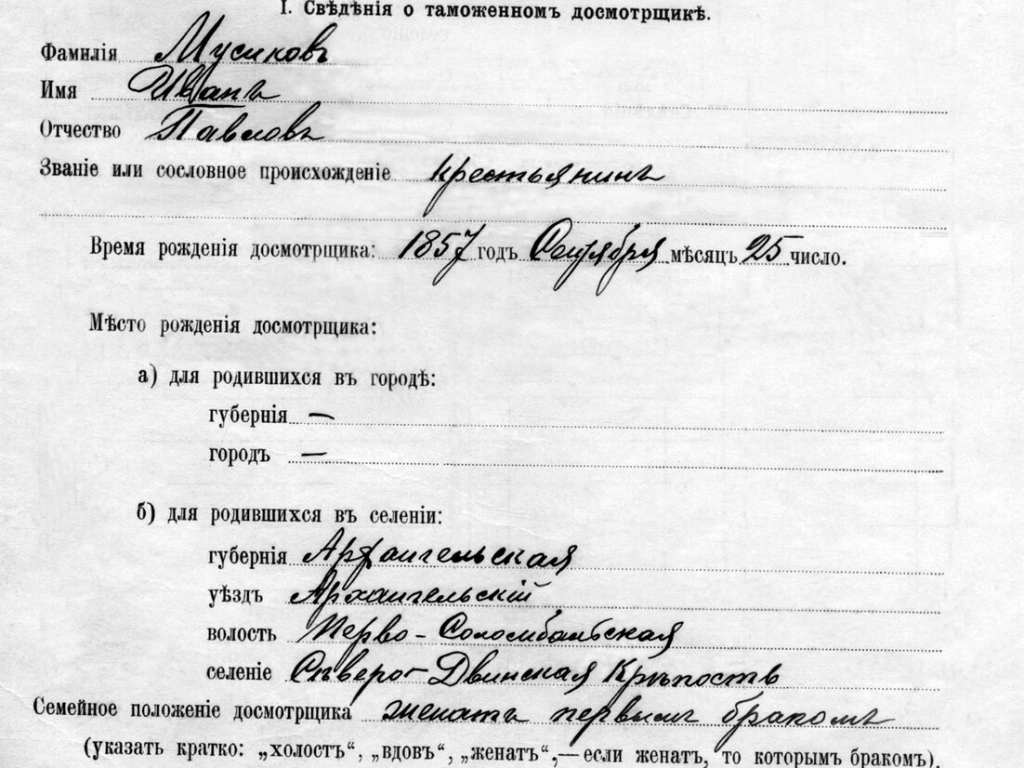 I. Свѣдѣнія о таможенномъ досмотрщикѣ.
Фамилія Мусиковъ
Имя Иванъ
Отчество Павловъ
Званіе или сословное происхожденіе крестьянинъ
Время рожденія досмотрщика: 1857 годъ Сентября мѣсяцъ 25 число.
Мѣсто рожденія досмотрщика:
а) для родившихся въ городѣ:
губернія —
городъ —
б) для родившихся въ селеніи:
губернія Архангельская
уѣздъ Архангельскій
волость Перво-Соломбальская
селеніе Сѣверо-Двинская Крѣпость
Семейное положеніе досмотрщика женатъ первымъ бракомъ
(указать кратко: „холостъ“, „вдовъ“, „женатъ“,—если женатъ, то которымъ бракомъ).